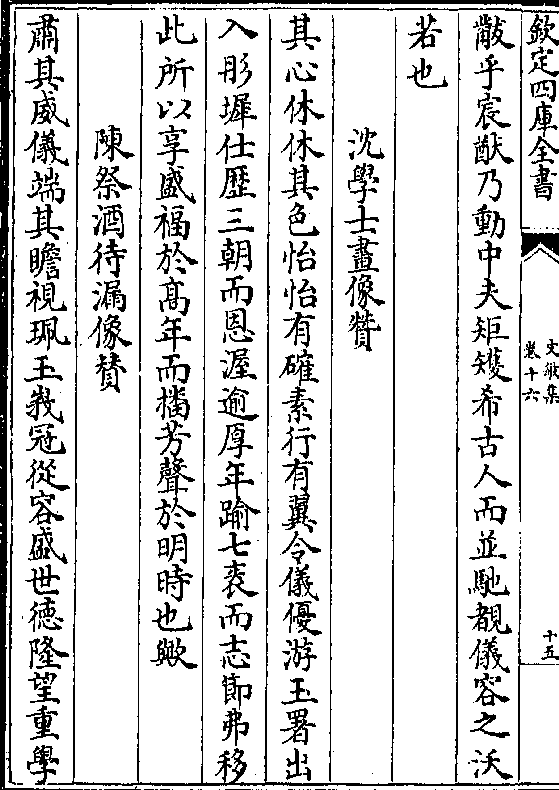 欽定四庫全書
文敏集
卷十六
十五
黻乎宸猷乃動中夫矩矱希古人而並馳覩儀容之沃
若也
沈學士畫像贊
其心休休其色怡怡有確素行有翼令儀優游玉署出
入彤墀仕歴三朝而恩渥逾厚年踰七袠而志節弗移
此所以享盛福於髙年而播芳聲於明時也歟
陳祭酒待漏像贊
肅其威儀端其瞻視珮玉峩冠從容盛世徳隆望重學